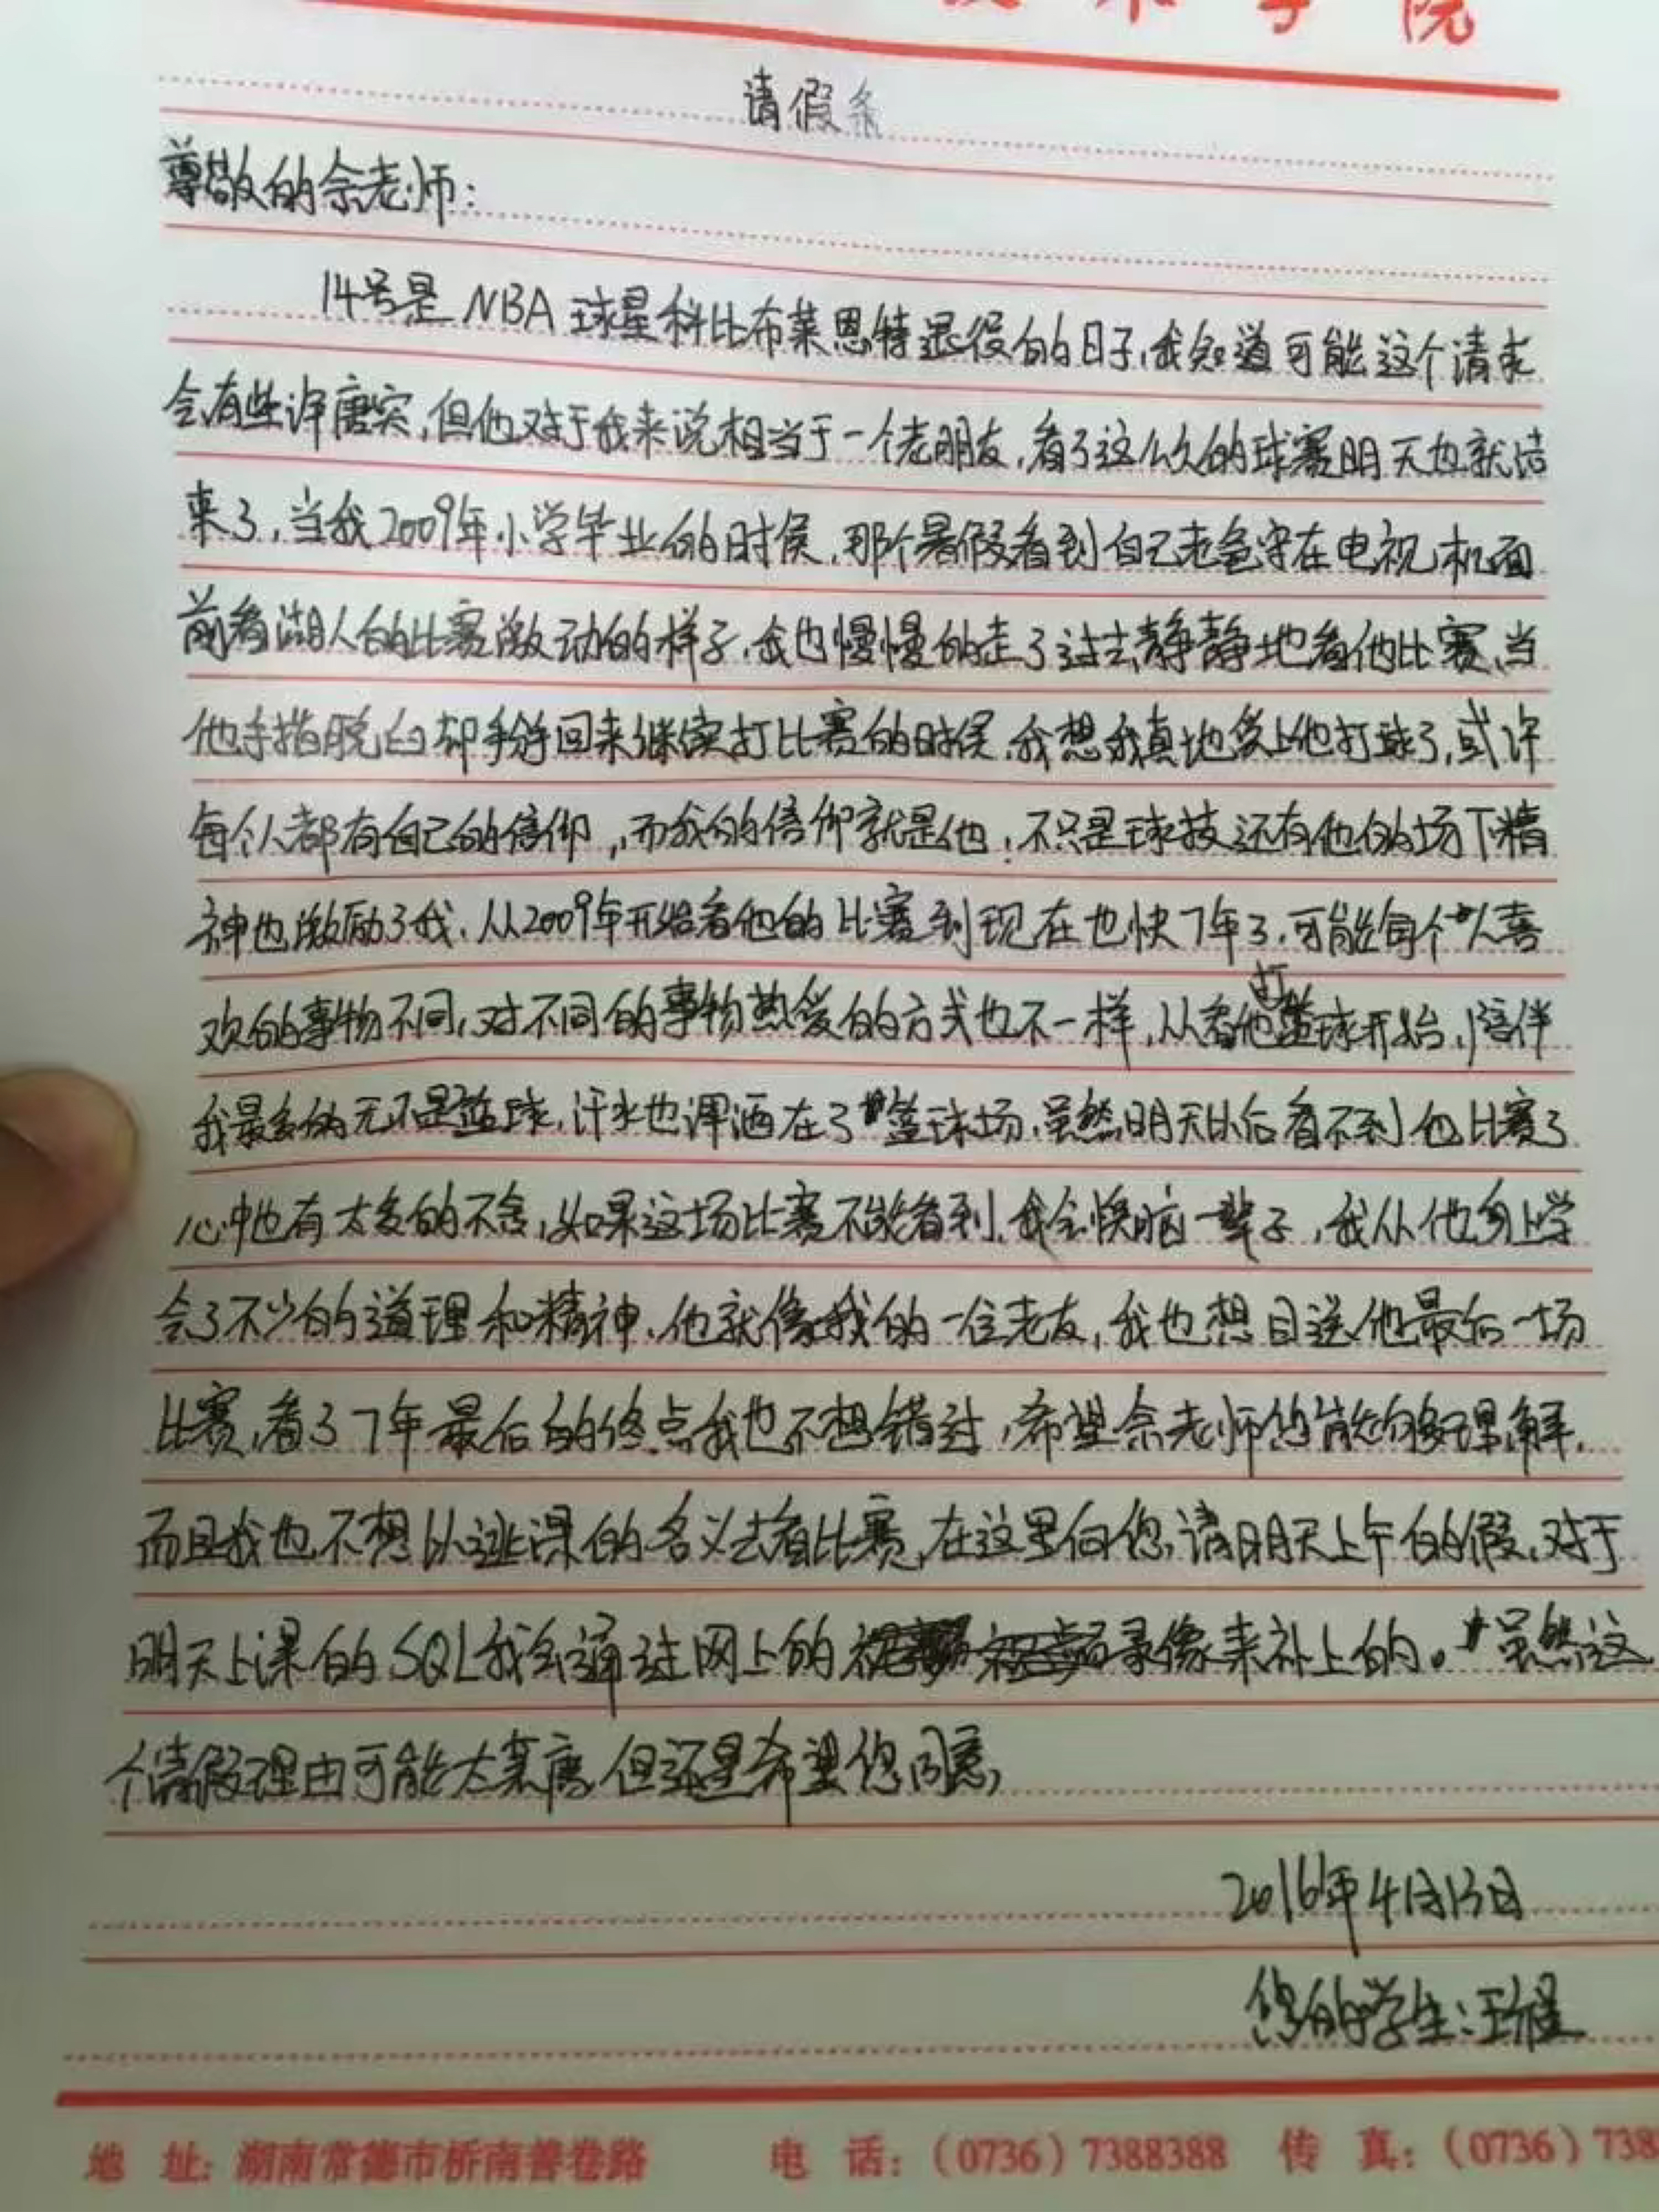 技术学院
请假条
尊敬的佘老师：
14号是NBA球星科比布莱恩特退役的日子，我知道可能这个请求
会有些许唐突，但他对于我来说相当于一个老朋友，看了这么久的球赛明天也就结
束了，当我2009年小学毕业的时候，那个暑假看到自己老爸守在电视机面
前看湖人的比赛激动的样子，我也慢慢的走了过去静静地看他比赛，当
他手指脱臼却手掰回来继续打比赛的时候，我想我真地爱上他打球了，或许
每个人都有自己的信仰，而我的信仰就是他；不只是球技还有他的场下精
神也激励了我，从2009年开始看他的比赛到现在也快7年了，可能每个人喜
欢的事物不同，对不同的事物热爱的方式也不一样，从看他打篮球开始，陪伴
我最多的无不是篮球，汗水也挥洒在了篮球场，虽然明天以后看不到他比赛了
心中也有太多的不舍，如果这场比赛不能看到，我会懊恼一辈子，我从他身上学
会了不少的道理和精神，他就像我的一位老友，我也想目送他最后一场
比赛，看了7年最后的终点我也不想错过，希望佘老师您能够理解，
而且我也不想以逃课的名义去看比赛，在这里向您请明天上午的假，对于
明天上课的SQL我会通过网上的录像来补上的。虽然这
个请假理由可能太荒唐，但还是希望您同意，
2016年4月13日
您的学生：汪
地 址：湖南常德市桥南善卷路 电 话：（0736）7388388 传 真：（0736）738